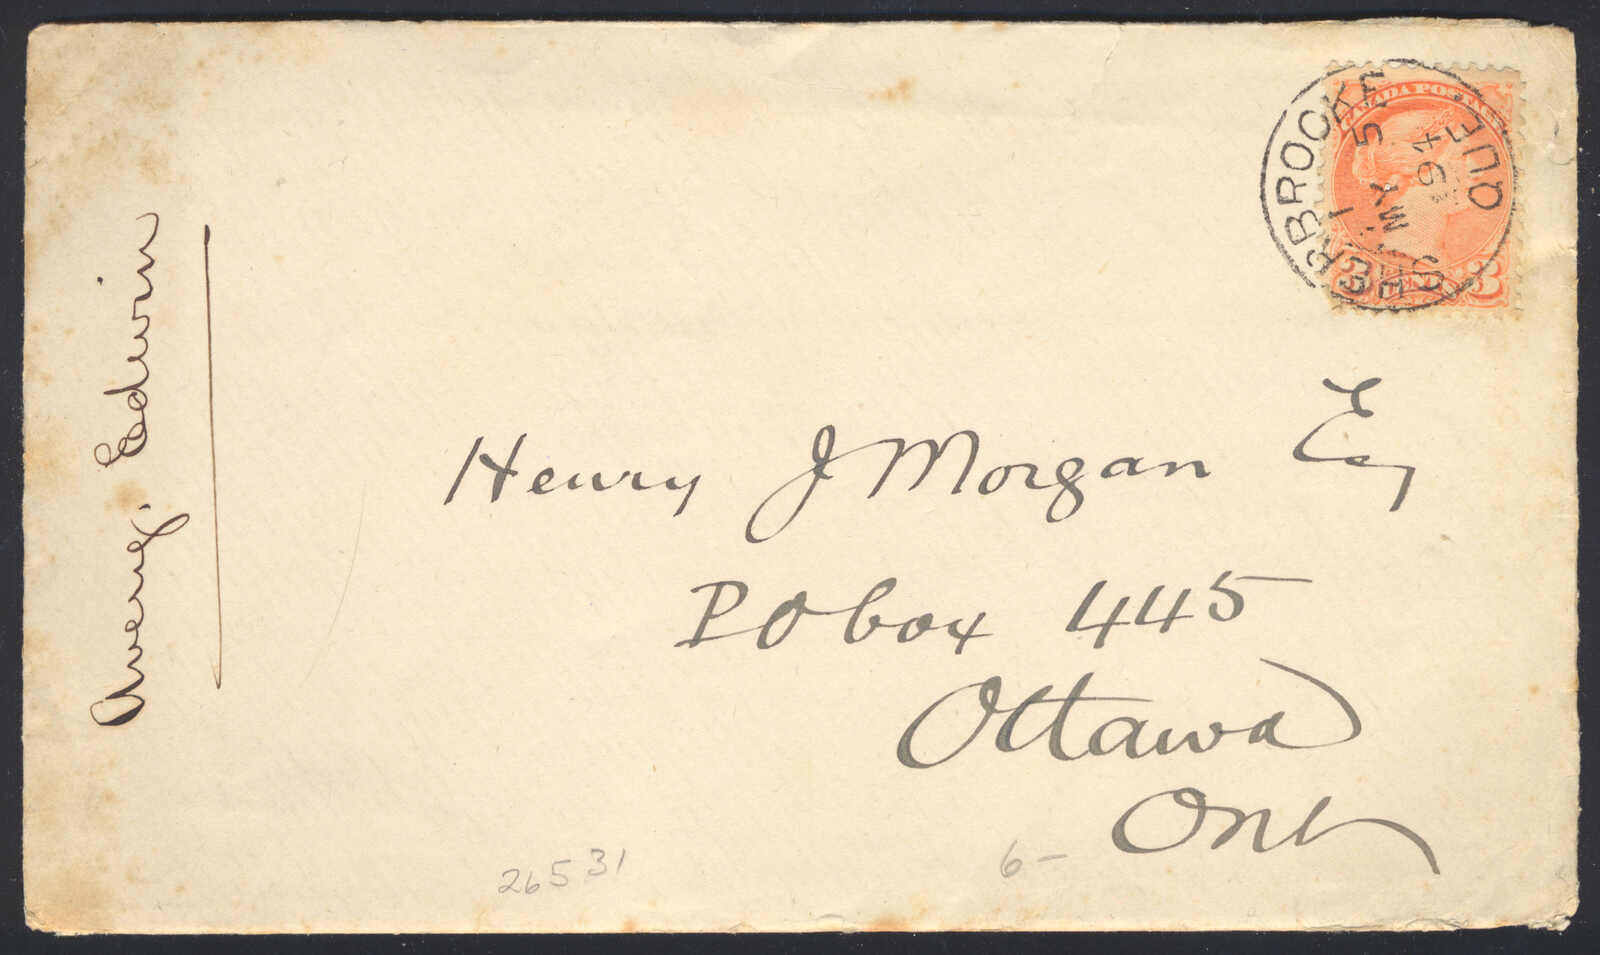 CANADA POSTAGE
3 CENTS 3
SHERBROOKE QUE
1
MY 5
94
Edwin
Henry J Morgan Esq
PO box 445
Ottawa
Ont
26531
6-